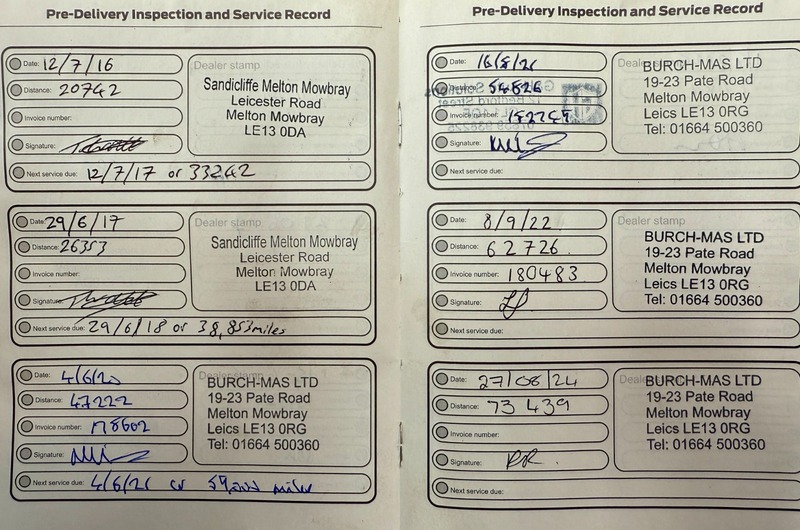 Pre-Delivery Inspection and Service Record
Date: 12/7/16
Distance: 20742
Invoice number:
Signature:
Next service due: 12/7/17 or 33242
Dealer stamp
Sandicliffe Melton Mowbray
Leicester Road
Melton Mowbray
LE13 0DA
Date: 29/6/17
Distance: 26353
Invoice number:
Signature:
Next service due: 29/6/18 or 38,853 miles
Dealer stamp
Sandicliffe Melton Mowbray
Leicester Road
Melton Mowbray
LE13 0DA
Date: 4/6/20
Distance: 47222
Invoice number:
Signature:
Next service due: 4/6/21 or miles
Dealer stamp
BURCH-MAS LTD
19-23 Pate Road
Melton Mowbray
Leics LE13 0RG
Tel: 01664 500360
Pre-Delivery Inspection and Service Record
Date: 16/8/21
Distance: 54826
Invoice number:
Signature:
Next service due:
Deale
BURCH-MAS LTD
19-23 Pate Road
Melton Mowbray
Leics LE13 0RG
Tel: 01664 500360
Date: 8/9/22
Distance: 62726
Invoice number: 180483
Signature:
Next service due:
Dealer stamp
BURCH-MAS LTD
19-23 Pate Road
Melton Mowbray
Leics LE13 0RG
Tel: 01664 500360
Date: 27/08/24
Distance: 73 439
Invoice number:
Signature: RR.
Next service due:
Deale
BURCH-MAS LTD
19-23 Pate Road
Melton Mowbray
Leics LE13 0RG
Tel: 01664 500360